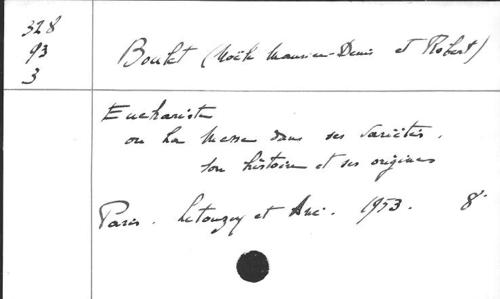 328
93
3
Boulet (Noële Maurice-Denis et Robert)
Eucharistie
ou La Messe dans ses variétés,
son histoire et ses origines
Paris. Letouzey et Ané. 1953. 8°